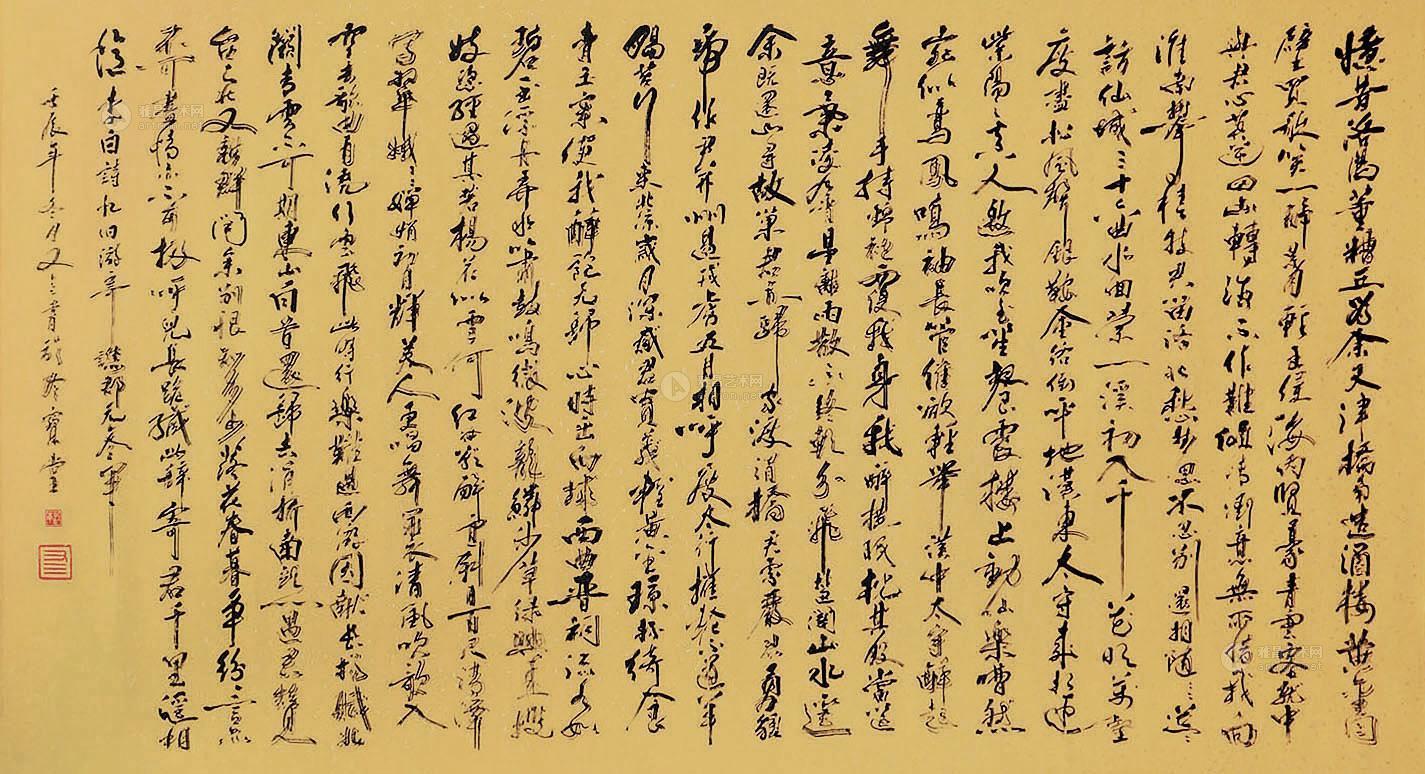 憶昔洛陽董糟丘為余天津橋南造酒樓黃金白
璧買歌笑一醉累月輕王侯海內賢豪青雲客就中
與君心莫逆回山轉海不作難傾情倒意無所惜我向
淮南攀桂枝君留洛北愁夢思不忍別還相隨相隨迢迢
訪仙城三十六曲水回縈一溪初入千花明萬壑
度盡松風聲銀鞍金絡到平地漢東太守來相迎
紫陽之真人邀我吹玉笙餐霞樓上動仙樂嘈然
宛似鸞鳳鳴袖長管催欲輕舉漢中太守醉起
舞手持錦袍覆我身我醉橫眠枕其股當筵
意氣凌九霄星離雨散不終朝分飛楚關山水遙
余既還山尋故巢君亦歸家渡渭橋君家嚴君勇貔
虎作尹并州遏戎虜五月相呼度太行摧輪不道羊
腸苦行來北京歲月深感君貴義輕黃金瓊杯綺食
青玉案使我醉飽無歸心時時出向城西曲晉祠流水如
碧玉浮舟弄水簫鼓鳴微波龍鱗莎草綠興來攜
妓恣經過其若楊花似雪何紅妝欲醉宜斜日百尺清潭
寫翠娥翠娥嬋娟初月輝美人更唱舞羅衣清風吹歌入
空去歌曲自繞行雲飛此時行樂難再遇西游因獻長楊賦北
闕青雲不可期東山白首還歸去渭橋南頭一遇君酇
台之北又離群問余別恨知多少落花春暮爭紛紛言亦
不可盡情亦不可極呼兒長跪緘此辭寄君千里遙相
憶 李白詩憶旧游寄譙郡元參軍
壬辰年冬月